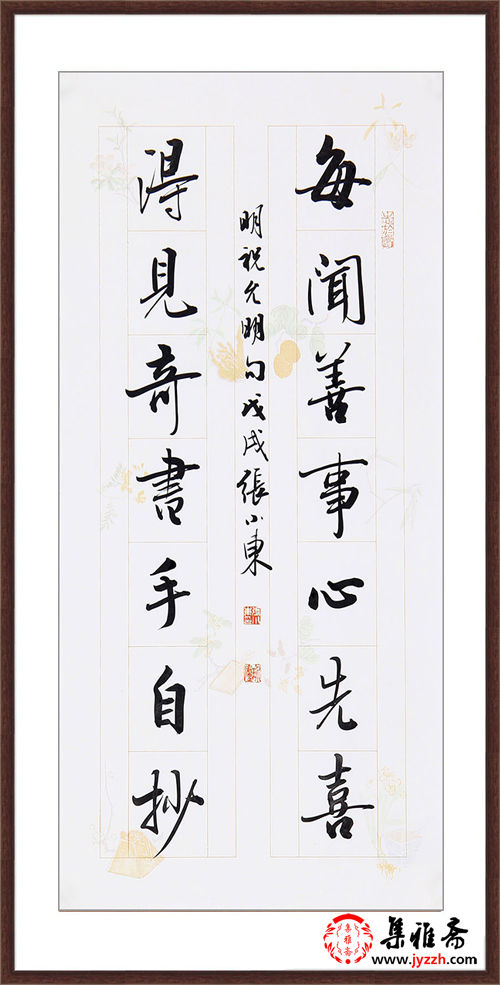 每闻善事心先喜
得見奇書手自抄
明祝允明句戊戌張小東
集雅斋
集雅斋
www.jyzzh.com